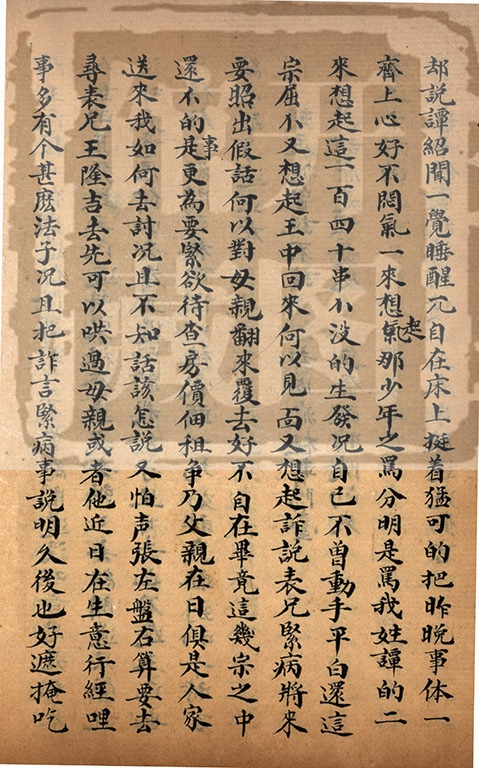 却說譚紹聞一覺睡醒兀自在床上挺着猛可的把昨晚事体一
齊上心好不悶氣一來想起那少年之罵分明是罵我姓譚的二
來想起這一百四十串小沒的生發况自已不曾動手平白還這
宗屈不又想起王中回來何以見面又想起詐說表兄緊病將來
要照出假話何以對母親翻來覆去好不自在畢竟這幾宗之中
還不的是事更為要緊欲待查房價佃租争乃父親在日俱是人家
送來我如何去討况且不知話該怎說又怕声張左盤右算要去
尋表兄王隆吉去先可以哄過母親或者他近日在生意行經哩
事多有个甚麽法子况且把詐言緊病事說明久後也好遮掩吃